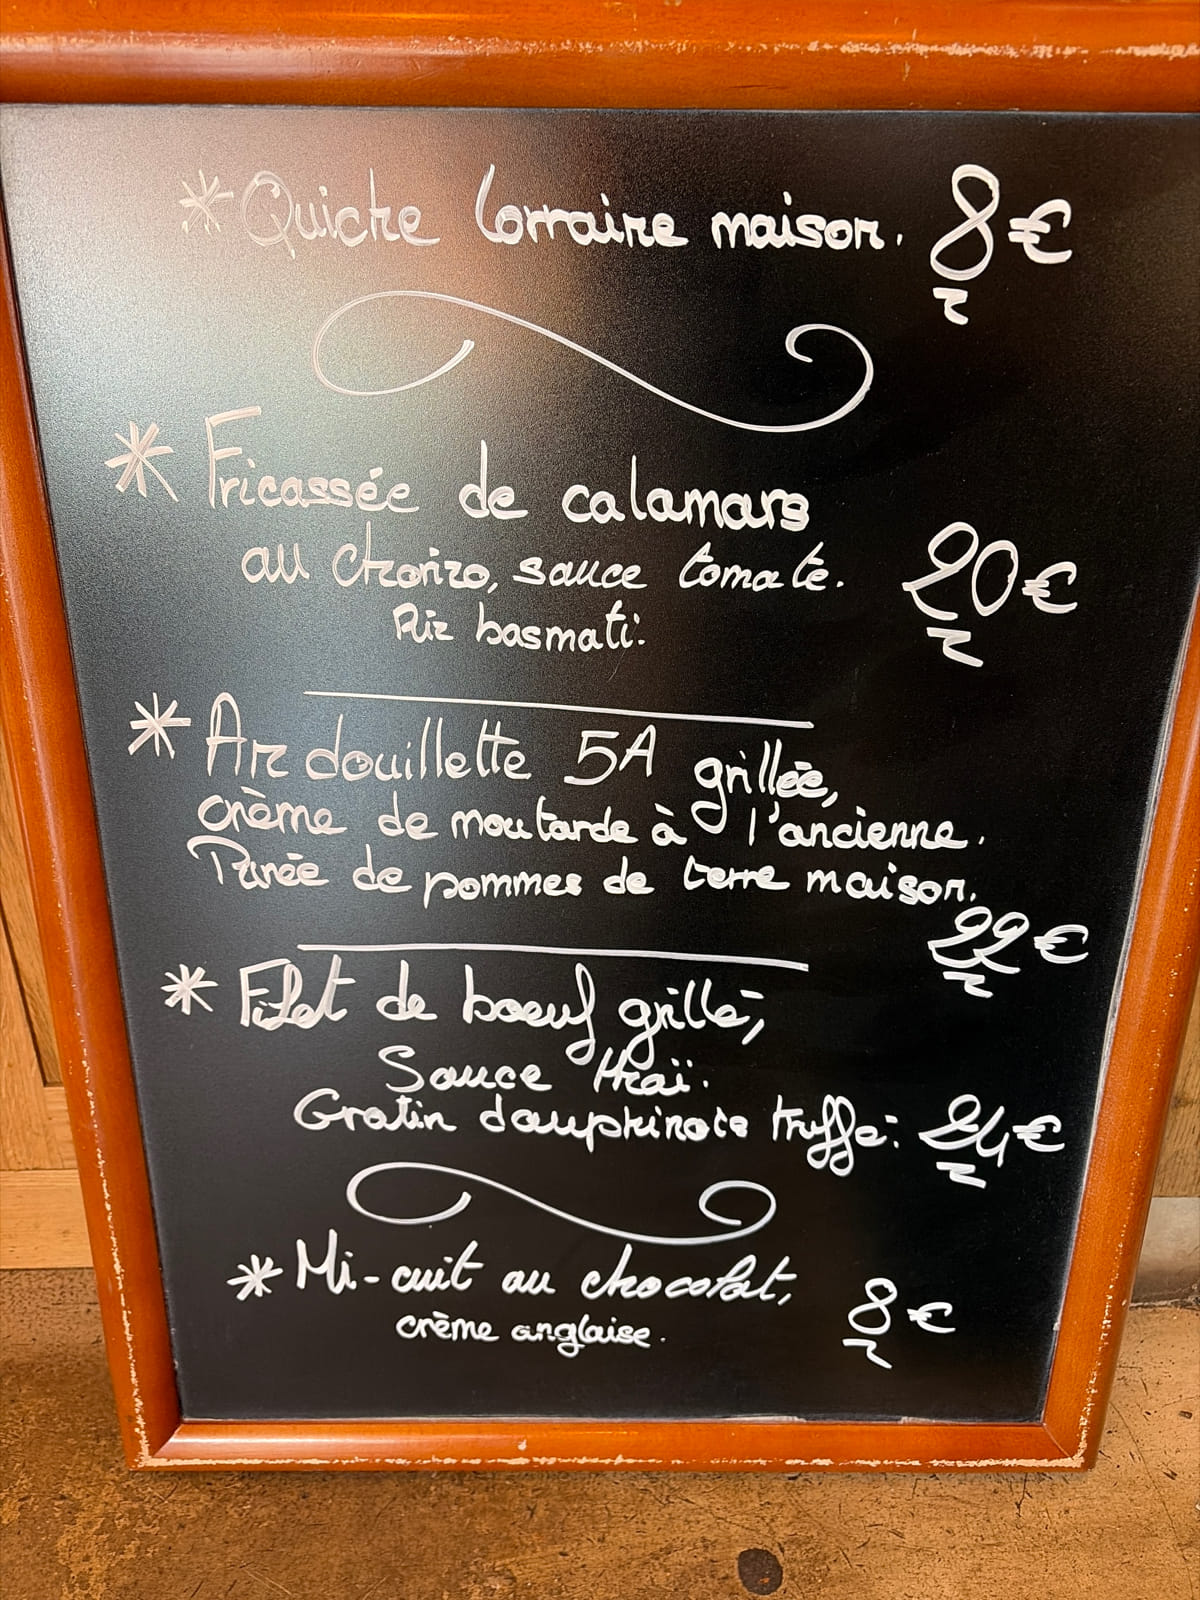 * Quiche lorraine maison. 8€
* Fricassée de calamars
au chorizo, sauce tomate.
Riz basmati.
20€
* Andouillette 5A grillée,
crème de moutarde à l'ancienne.
Purée de pommes de terre maison.
22€
* Filet de boeuf grillé,
Sauce thaï.
Gratin dauphinois truffé. 24€
* Mi-cuit au chocolat,
crème anglaise.
8€